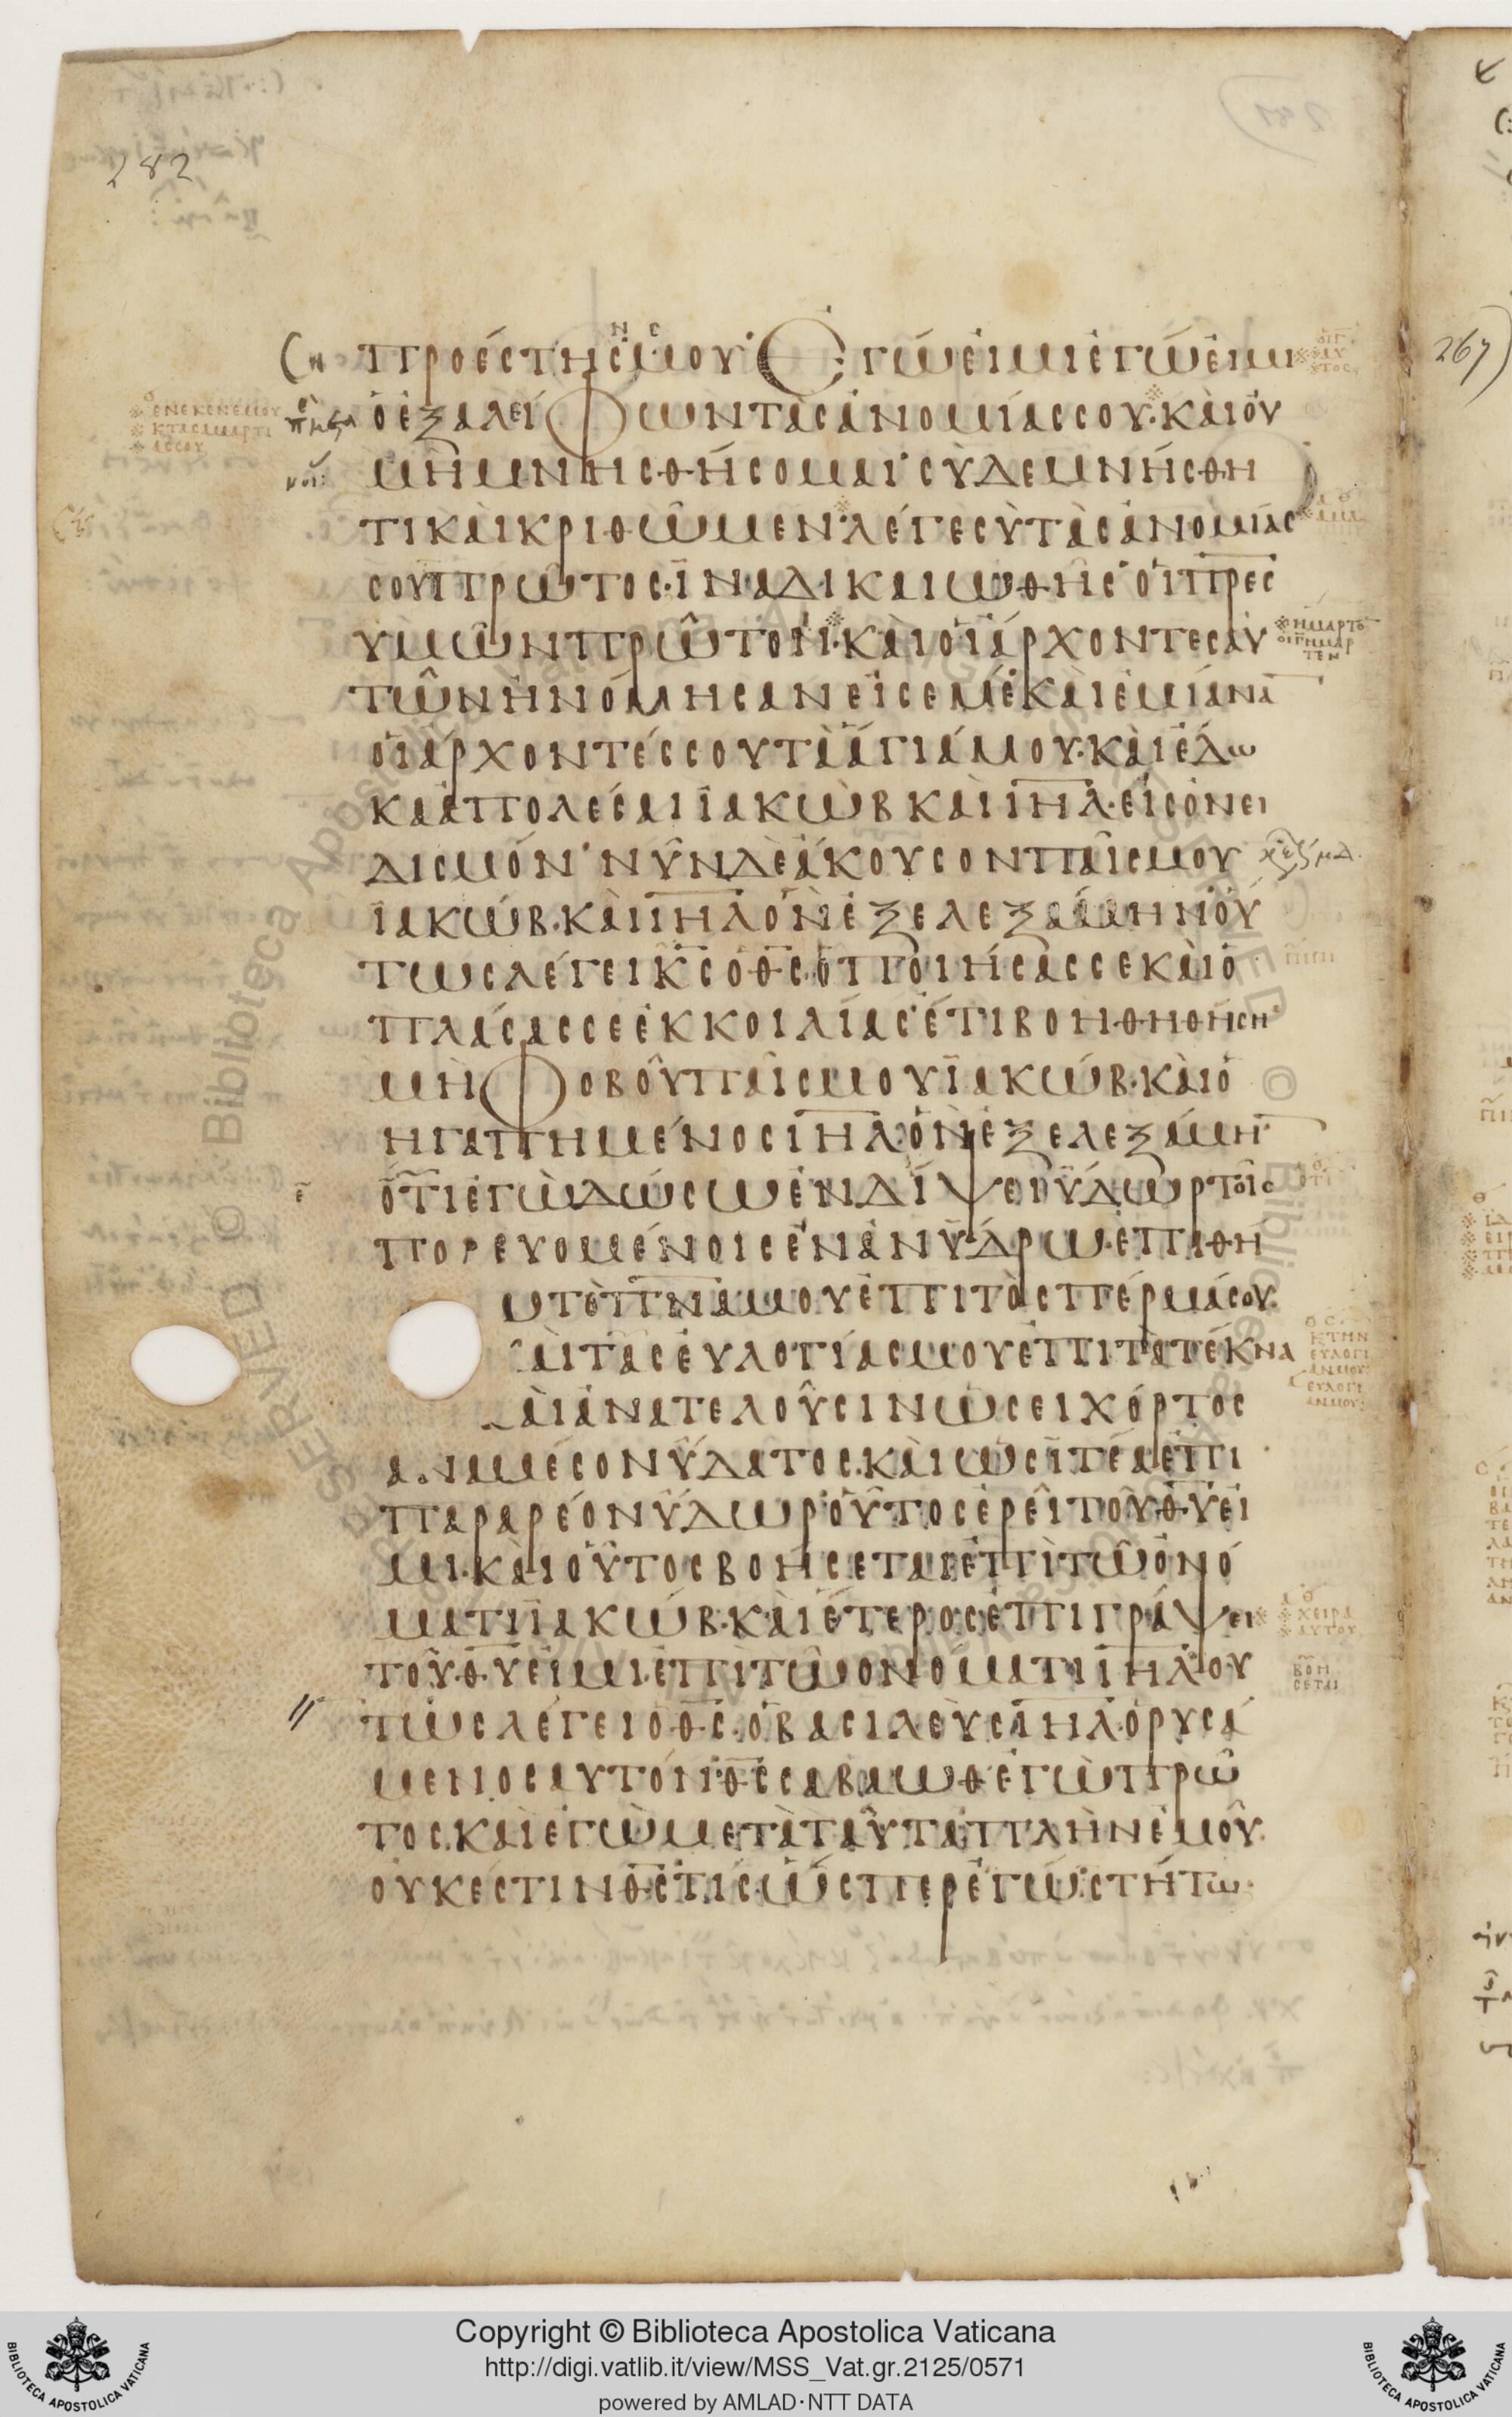 282
ΠΡΟΕϹΤΗϹΜΟΥ ΕΓΩΕΙΜΙΕΓΩΕΙΜΙ
ΟΕΞΑΛΕΙΦΩΝΤΑϹΑΝΟΜΙΑϹϹΟΥ·ΚΑΙΟΥ
ΜΗΜΝΗϹΘΗϹΟΜΑΙ ϹΥΔΕΜΝΗϹΘΗ
ΤΙΚΑΙΚΡΙΘΩΜΕΝ ΛΕΓΕϹΥΤΑϹΑΝΟΜΙΑϹ
ϹΟΥΠΡΩΤΟϹ·ΙΝΑΔΙΚΑΙΩΘΗϹ ΟΙΠΡΕϹ
ΥΜΩΝΠΡΩΤΟΝ·ΚΑΙΟΙΑΡΧΟΝΤΕϹΑΥ
ΤΩΝΗΝΟΜΗϹΑΝΕΙϹΕΜΕΚΑΙΕΜΙΑΝᾹ
ΟΙΑΡΧΟΝΤΕϹϹΟΥΤΑΑΓΙΑΜΟΥ·ΚΑΙΕΔΩ
ΚΑΑΠΟΛΕϹΑΙΙΑΚΩΒΚΑΙΙΗΛ·ΕΙϹΟΝΕΙ
ΔΙϹΜΟΝ ΝΥΝΔΕΑΚΟΥϹΟΝΠΑΙϹΜΟΥ
ΙΑΚΩΒ·ΚΑΙΙΗΛΟΝΕΞΕΛΕΞΑΜΗΝΟΥ
ΤΩϹΛΕΓΕΙΚϹΟΘϹ·ΟΠΟΙΗϹΑϹϹΕΚΑΙΟ
ΠΛΑϹΑϹϹΕΕΚΚΟΙΛΙΑϹ ΕΤΙΒΟΗΘΗΘΗϹΗ
ΜΗΦΟΒΟΥΠΑΙϹΜΟΥΙΑΚΩΒ·ΚΑΙΟ
ΗΓΑΠΗΜΕΝΟϹΙΗΛ·ΟΝΕΞΕΛΕΞΑΜΗ̄
ΟΤΙΕΓΩΔΩϹΩΕΝΔΙΨΕΙΥΔΩΡΤΟΙϹ
ΠΟΡΕΥΟΜΕΝΟΙϹΕΝΑΝΥΔΡΩ·ΕΠΙΘΗ
ΩΤΟΠΝΑΜΟΥΕΠΙΤΟϹΠΕΡΜΑϹΟΥ·
ΑΙΤΑϹΕΥΛΟΓΙΑϹΜΟΥΕΠΙΤΑΤΕΚΝΑ
ΑΙΑΝΑΤΕΛΟΥϹΙΝΩϹΕΙΧΟΡΤΟϹ
ΑΝΑΜΕϹΟΝΥΔΑΤΟϹ·ΚΑΙΩϹΙΤΕΑΕΠΙ
ΠΑΡΑΡΕΟΝΥΔΩΡ ΟΥΤΟϹΕΡΕΙΤΟΥΘΥΕΙ
ΜΙ·ΚΑΙΟΥΤΟϹΒΟΗϹΕΤΑΙΕΠΙΤΩΟΝΟ
ΜΑΤΙΙΑΚΩΒ·ΚΑΙΕΤΕΡΟϹΕΠΙΓΡΑΨΕΙ
ΤΟΥΘΥΕΙΜΙ·ΕΠΙΤΩΟΝΟΜΑΤΙΙΗΛ ΟΥ
ΤΩϹΛΕΓΕΙΟΘϹ·ΟΒΑϹΙΛΕΥϹΙΗΛ·ΟΡΥϹΑ
ΜΕΝΟϹΑΥΤΟΝΘϹϹΑΒΑΩΘ ΕΓΩΠΡΩ
ΤΟϹ·ΚΑΙΕΓΩΜΕΤΑΤΑΥΤΑ·ΠΛΗΝΕΜΟΥ
ΟΥΚΕϹΤΙΝΘϹ ΤΙϹ·ΩϹΠΕΡΕΓΩ·ϹΤΗΤΩ·
ΕΝΕΚΕΝΕΜΟΥ
ΚΤΑϹΑΜΑΡΤΙ
ΑϹϹΟΥ
ΗΜΑΡΤΟ̄
ΚΤΗΝ
ΕΥΛΟΓΙ
ΑΝΜΟΥ
ΕΥΛΟΓΙ
ΑΝΜΟΥ
ΧΕΙΡΑ
ΑΥΤΟΥ
ΒΟΗ
ϹΕΤΑΙ
267
Copyright © Biblioteca Apostolica Vaticana
http://digi.vatlib.it/view/MSS_Vat.gr.2125/0571
powered by AMLAD·NTT DATA
BIBLIOTECA APOSTOLICA VATICANA
BIBLIOTECA APOSTOLICA VATICANA